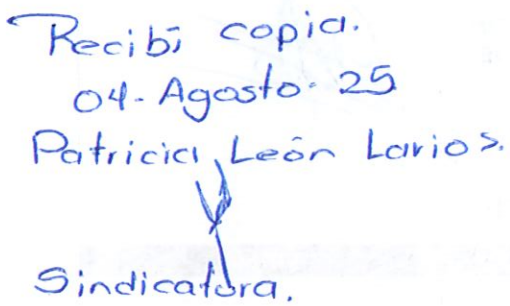 Recibí copia.
04-Agosto-25
Patricia León Larios.
Sindicatura.